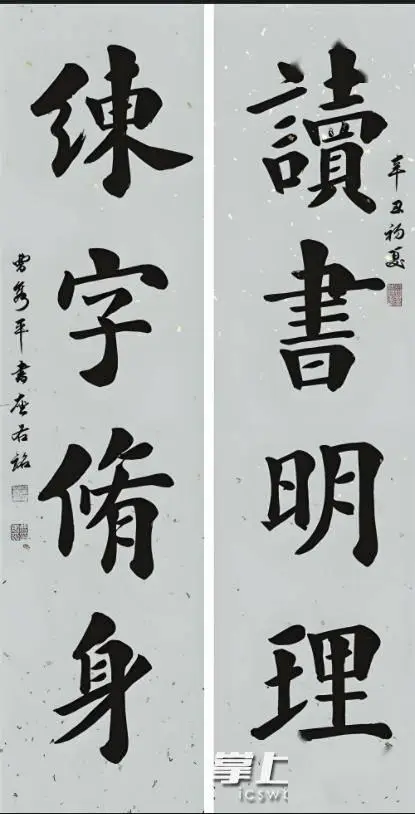 讀書明理
辛丑初夏
練字脩身
曹秀平書座右銘
掌上
icswb